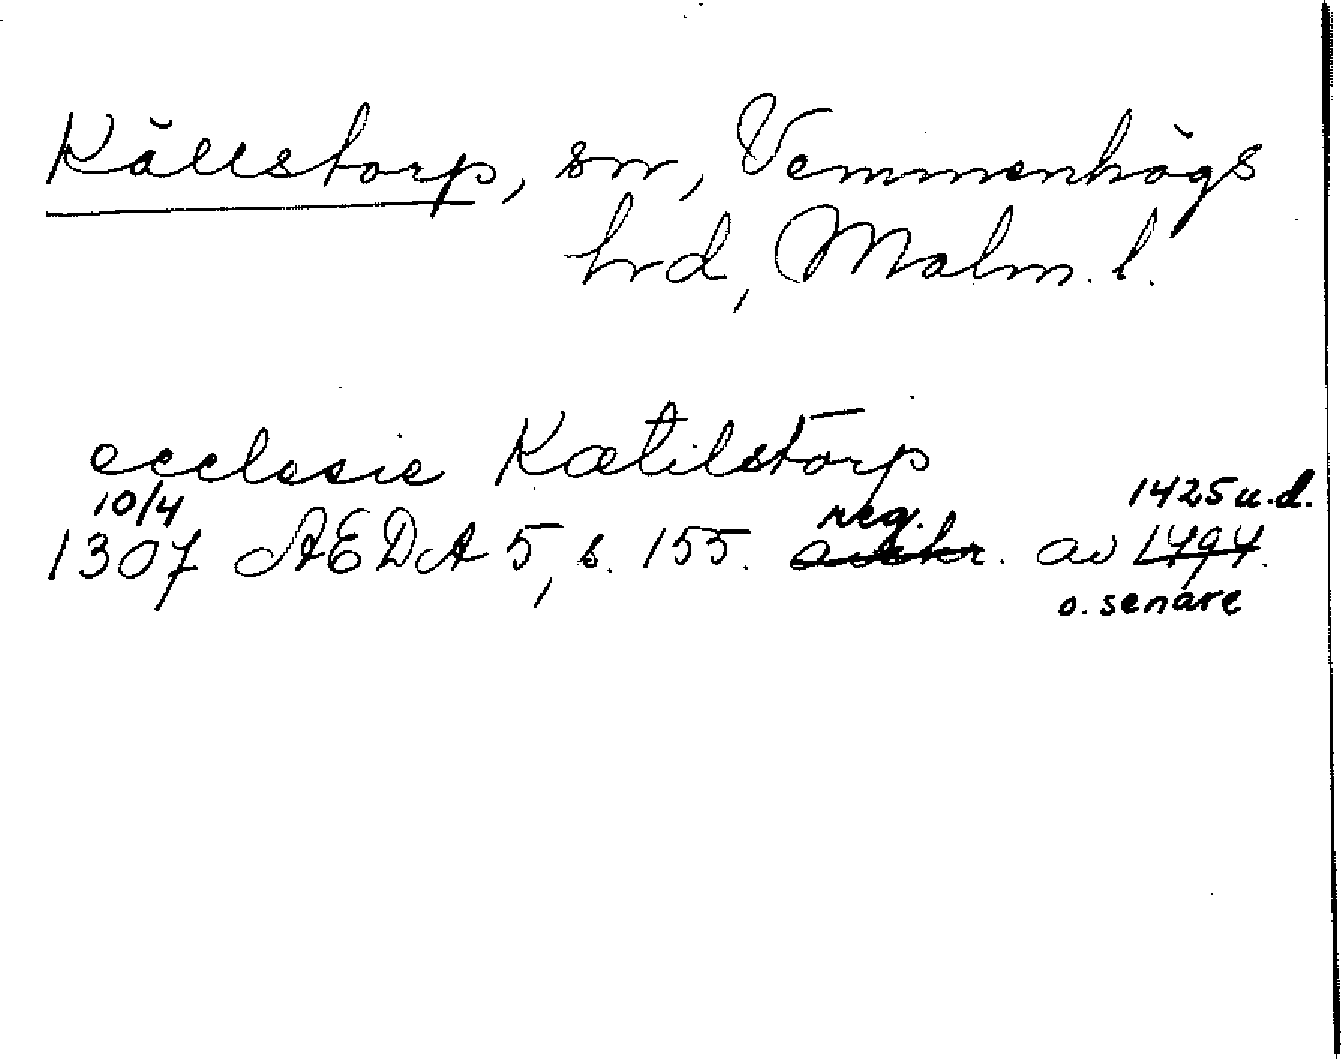 Källstorp, sn, Vemmenhögs
hrd, Malm. l.
ecclesie Kætilstorp
10/4 reg. 1425 u.d.
1307 AEDA 5, s. 155. avskr. av 1494.
o. senare